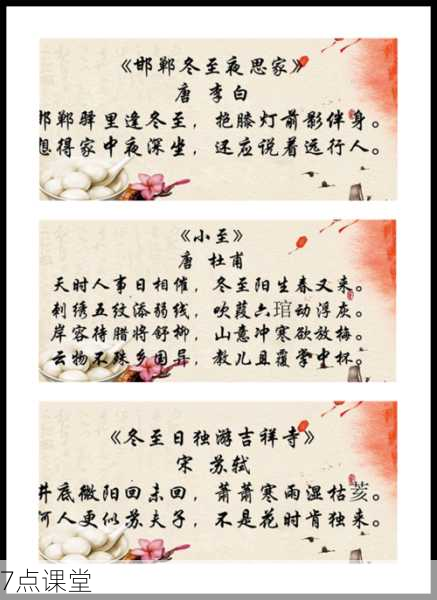 《邯郸冬至夜思家》
唐 李白
邯郸驿里逢冬至，抱膝灯前影伴身。
想得家中夜深坐，还应说着远行人。
《小至》
唐 杜甫
天时人事日相催，冬至阳生春又来。
刺绣五纹添弱线，吹葭六琯动浮灰。
岸容待腊将舒柳，山意冲寒欲放梅。
云物不殊乡国异，教儿且覆掌中杯。
《冬至日独游吉祥寺》
宋 苏轼
井底微阳回未回，萧萧寒雨湿枯荄。
何人更似苏夫子，不是花时肯独来。
7点课堂